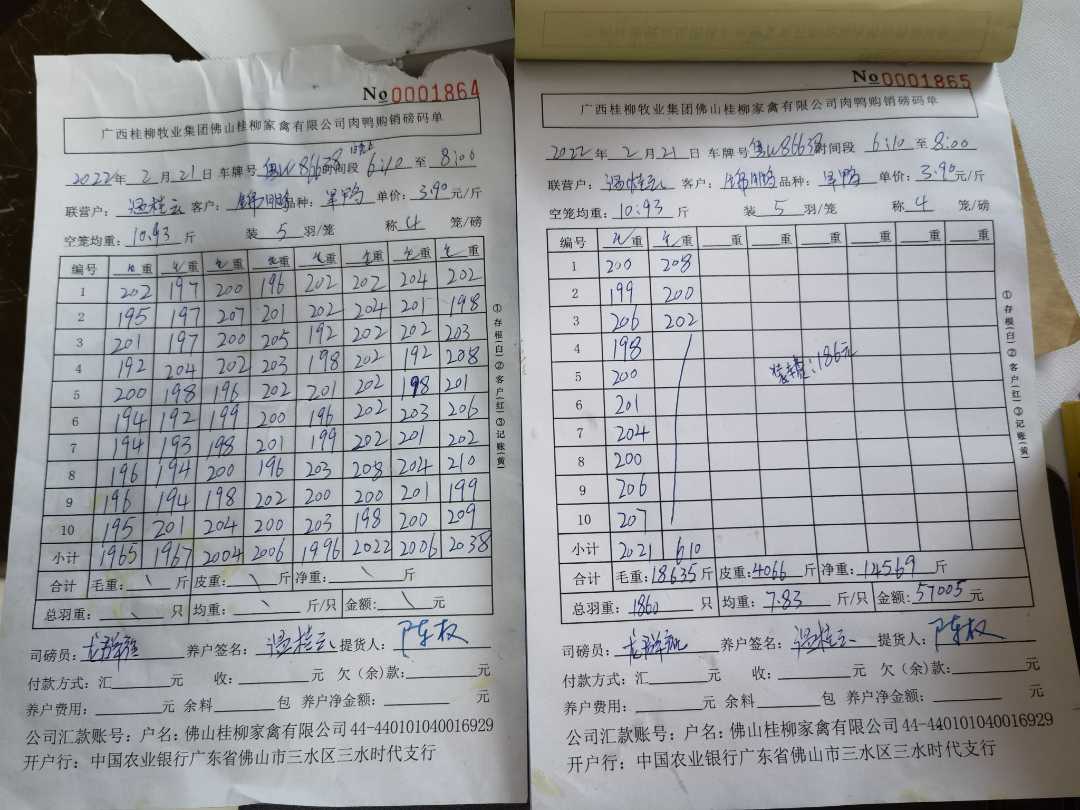 No 0001864
广西桂柳牧业集团佛山桂柳家禽有限公司肉鸭购销磅码单
2022年 2月21日 车牌号 粤W8663B 时间段 6:10 至 8:00
联营户: 温桂云 客户: 品种: 旱鸭 单价: 3.90元/斤
空笼均重: 10.93 斤 装 5 羽/笼 称 4 笼/磅
编号 毛重 毛重 毛重 毛重 毛重 毛重 毛重 毛重
1 202 197 200 196 202 202 204 202
2 195 197 207 201 202 204 201 198
3 201 197 200 205 192 202 202 203
4 192 204 202 203 198 202 192 208
5 200 198 196 202 201 202 198 201
6 194 192 199 200 196 202 203 206
7 194 193 198 201 199 202 201 202
8 196 194 200 196 203 208 204 210
9 196 194 198 202 200 200 201 199
10 195 201 204 200 203 198 200 209
小计 1965 1967 2004 2006 1996 2022 2006 2038
合计 毛重: \ 斤 皮重: \ 斤 净重: \ 斤
总羽重: \ 只 均重: \ 斤/只 金额: \ 元
司磅员: 养户签名: 温桂云 提货人: 陈权
付款方式: 汇 元 收: 元 欠（余）款: 元
养户费用: 元 余料 包 养户净金额: 元
公司汇款账号: 户名: 佛山桂柳家禽有限公司44-440101040016929
开户行: 中国农业银行广东省佛山市三水区三水时代支行
①存根(白)②客户(红)③记账(黄)
No 0001865
广西桂柳牧业集团佛山桂柳家禽有限公司肉鸭购销磅码单
2022年 2月21日 车牌号 粤W8663B 时间段 6:10 至 8:00
联营户: 温桂云 客户: 品种: 旱鸭 单价: 3.90元/斤
空笼均重: 10.93 斤 装 5 羽/笼 称 4 笼/磅
编号 毛重 毛重 重 重 重 重 重 重
1 200 208
2 199 200
3 206 202
4 198
5 200 装车费:186元
6 201
7 204
8 200
9 206
10 207
小计 2021 610
合计 毛重: 18635 斤 皮重: 4066 斤 净重: 14569 斤
总羽重: 1860 只 均重: 7.83 斤/只 金额: 57005 元
司磅员: 养户签名: 温桂云 提货人: 陈权
付款方式: 汇 元 收: 元 欠（余）款: 元
养户费用: 元 余料 包 养户净金额: 元
公司汇款账号: 户名: 佛山桂柳家禽有限公司44-440101040016929
开户行: 中国农业银行广东省佛山市三水区三水时代支行
①存根(白)②客户(红)③记账(黄)